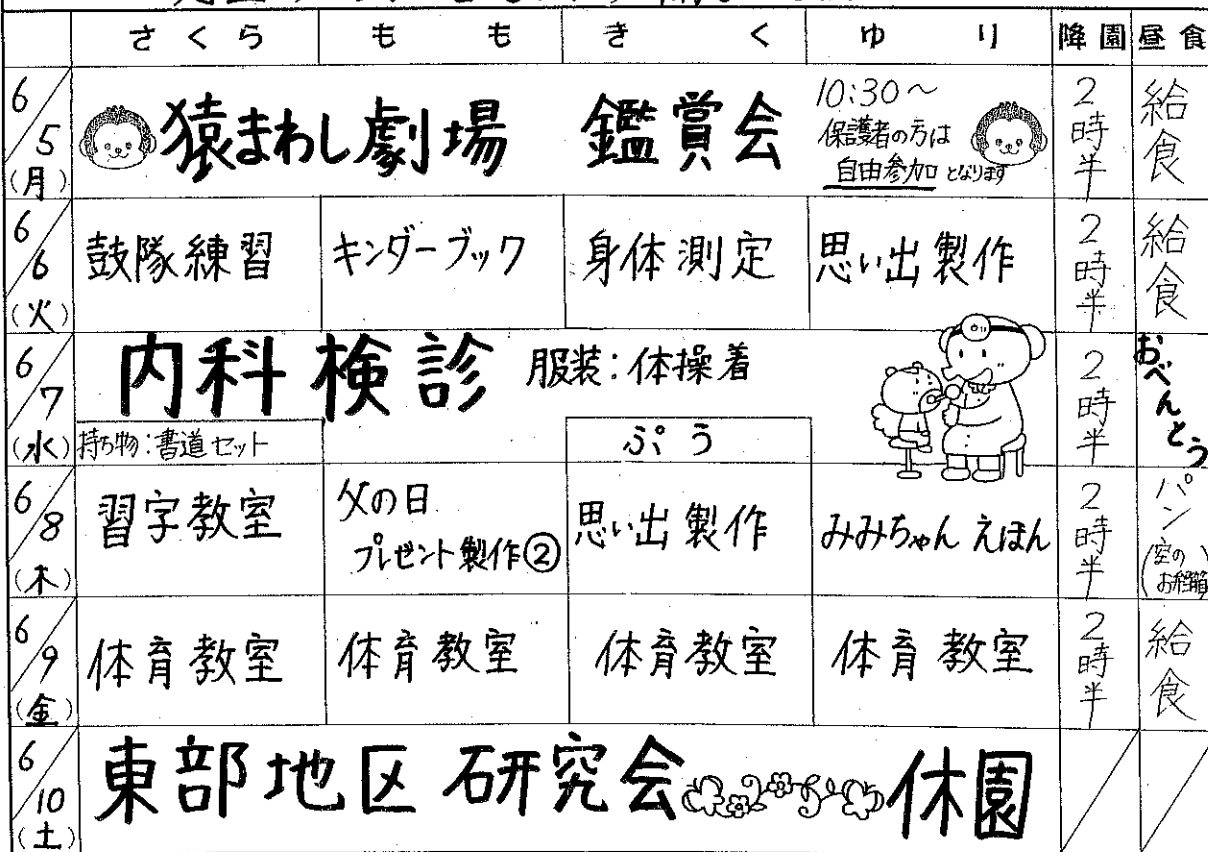 さくら もも きく ゆり 降園 昼食
6/5(月) 猿まわし劇場 鑑賞会 10:30～ 保護者の方は 自由参加となります 2時半 給食
6/6(火) 鼓隊練習 キンダーブック 身体測定 思い出製作 2時半 給食
6/7(水) 内科検診 服装:体操着 2時半 おべんとう
持ち物:書道セット ぷう
6/8(木) 習字教室 父の日 プレゼント製作② 思い出製作 みみちゃんえほん 2時半 パン (空のお弁当箱)
6/9(金) 体育教室 体育教室 体育教室 体育教室 2時半 給食
6/10(土) 東部地区研究会 休園